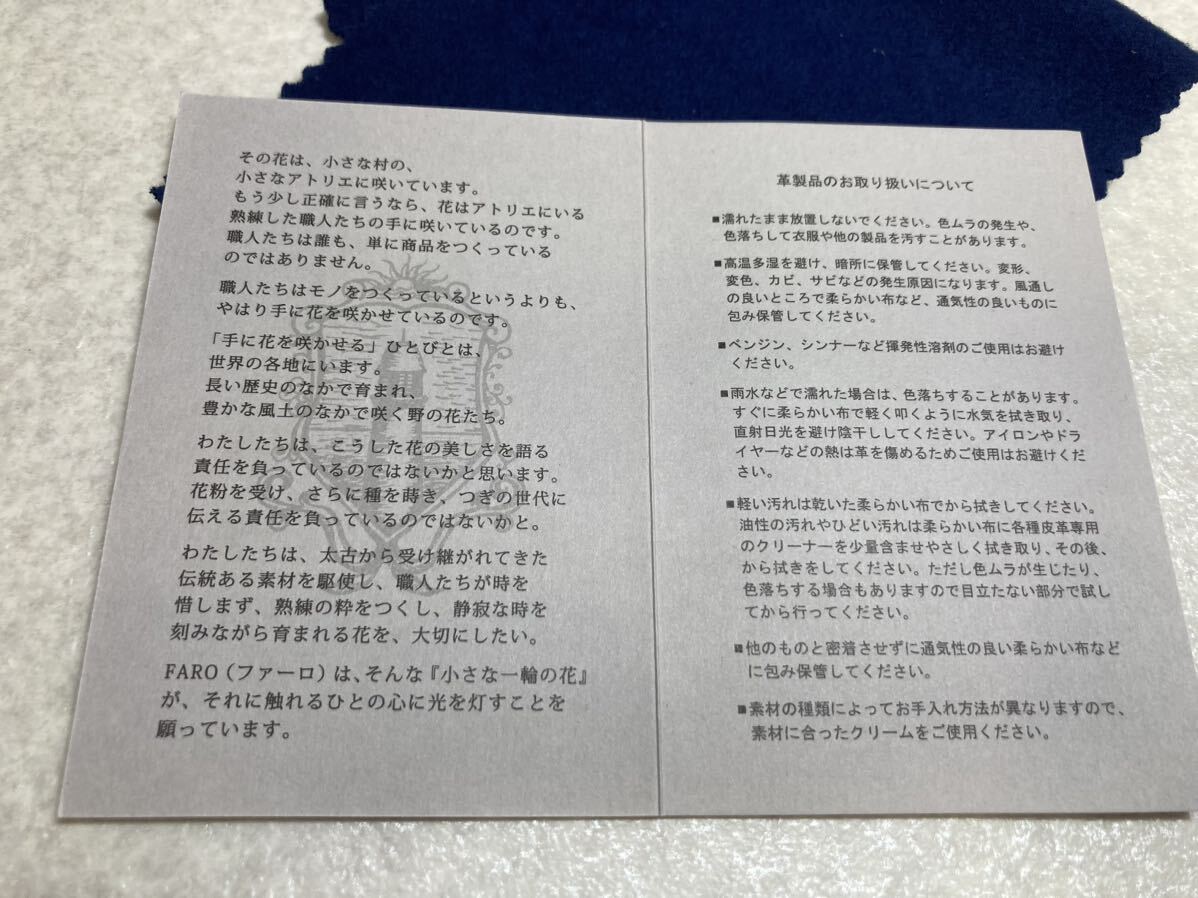 その花は、小さな村の、
小さなアトリエに咲いています。
もう少し正確に言うなら、花はアトリエにいる
熟練した職人たちの手に咲いているのです。
職人たちは誰も、単に商品をつくっている
のではありません。
職人たちはモノをつくっているというよりも、
やはり手に花を咲かせているのです。
「手に花を咲かせる」ひとびとは、
世界の各地にいます。
長い歴史のなかで育まれ、
豊かな風土のなかで咲く野の花たち。
わたしたちは、こうした花の美しさを語る
責任を負っているのではないかと思います。
花粉を受け、さらに種を蒔き、つぎの世代に
伝える責任を負っているのではないかと。
わたしたちは、太古から受け継がれてきた
伝統ある素材を駆使し、職人たちが時を
惜しまず、熟練の粋をつくし、静寂な時を
刻みながら育まれる花を、大切にしたい。
FARO（ファーロ）は、そんな『小さな一輪の花』
が、それに触れるひとの心に光を灯すことを
願っています。
革製品のお取り扱いについて
■濡れたまま放置しないでください。色ムラの発生や、
色落ちして衣服や他の製品を汚すことがあります。
■高温多湿を避け、暗所に保管してください。変形、
変色、カビ、サビなどの発生原因になります。風通し
の良いところで柔らかい布など、通気性の良いものに
包み保管してください。
■ベンジン、シンナーなど揮発性溶剤のご使用はお避け
ください。
■雨水などで濡れた場合は、色落ちすることがあります。
すぐに柔らかい布で軽く叩くように水気を拭き取り、
直射日光を避け陰干ししてください。アイロンやドラ
イヤーなどの熱は革を傷めるためご使用はお避けくだ
さい。
■軽い汚れは乾いた柔らかい布でから拭きしてください。
油性の汚れやひどい汚れは柔らかい布に各種皮革専用
のクリーナーを少量含ませやさしく拭き取り、その後、
から拭きをしてください。ただし色ムラが生じたり、
色落ちする場合もありますので目立たない部分で試し
てから行ってください。
■他のものと密着させずに通気性の良い柔らかい布など
に包み保管してください。
■素材の種類によってお手入れ方法が異なりますので、
素材に合ったクリームをご使用ください。